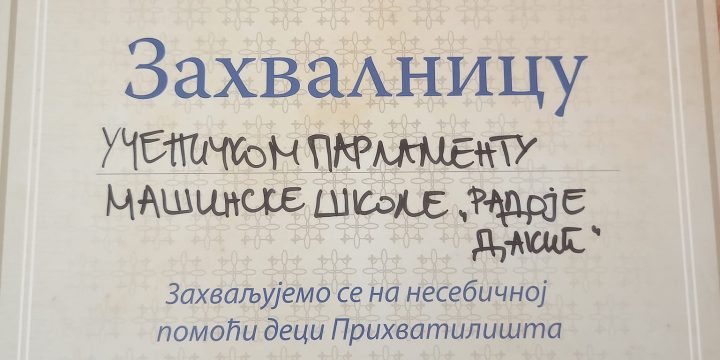 Захвалницу
УЧЕНИЧКОМ ПАРЛАМЕНТУ
МАШИНСКЕ ШКОЛЕ „РАДОЈЕ
ДАКИЋ“
Захваљујемо се на несебичној
помоћи деци Прихватилишта